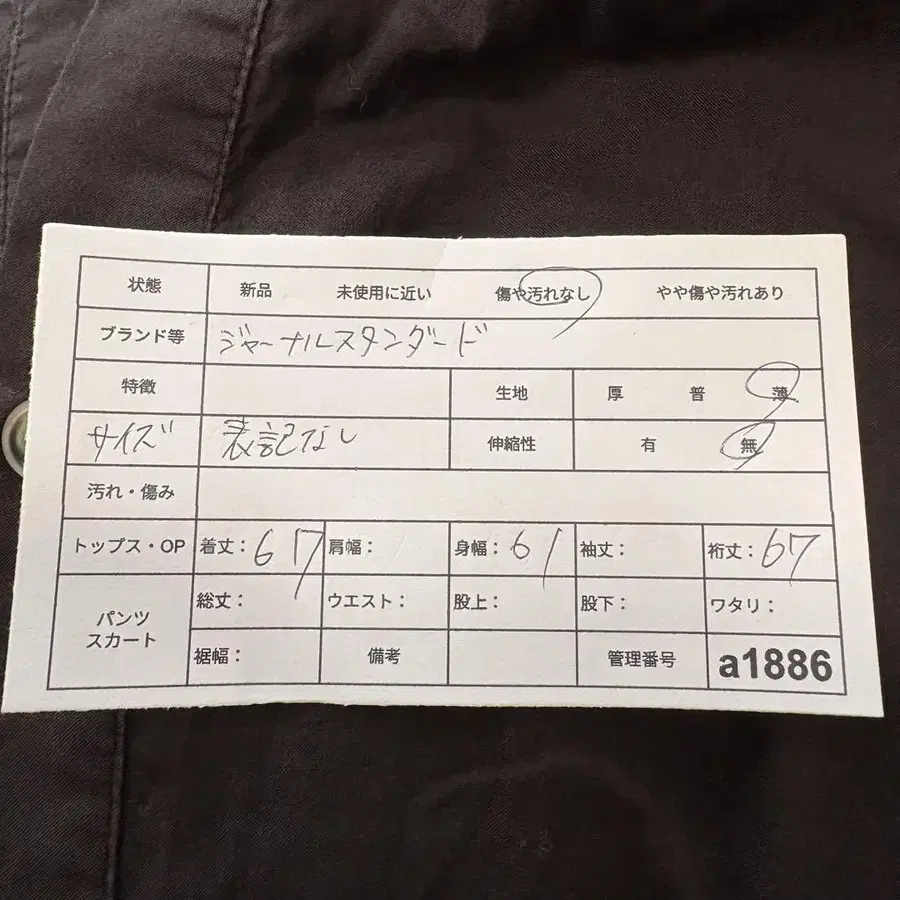 状態 新品 未使用に近い 傷や汚れなし やや傷や汚れあり
ブランド等 ジャーナルスタンダード
特徴 生地 厚 普 薄
サイズ 表記なし 伸縮性 有 無
汚れ・傷み
トップス・OP 着丈：67 肩幅： 身幅：61 袖丈： 裄丈：67
パンツ スカート 総丈： ウエスト： 股上： 股下： ワタリ：
裾幅： 備考 管理番号 a1886